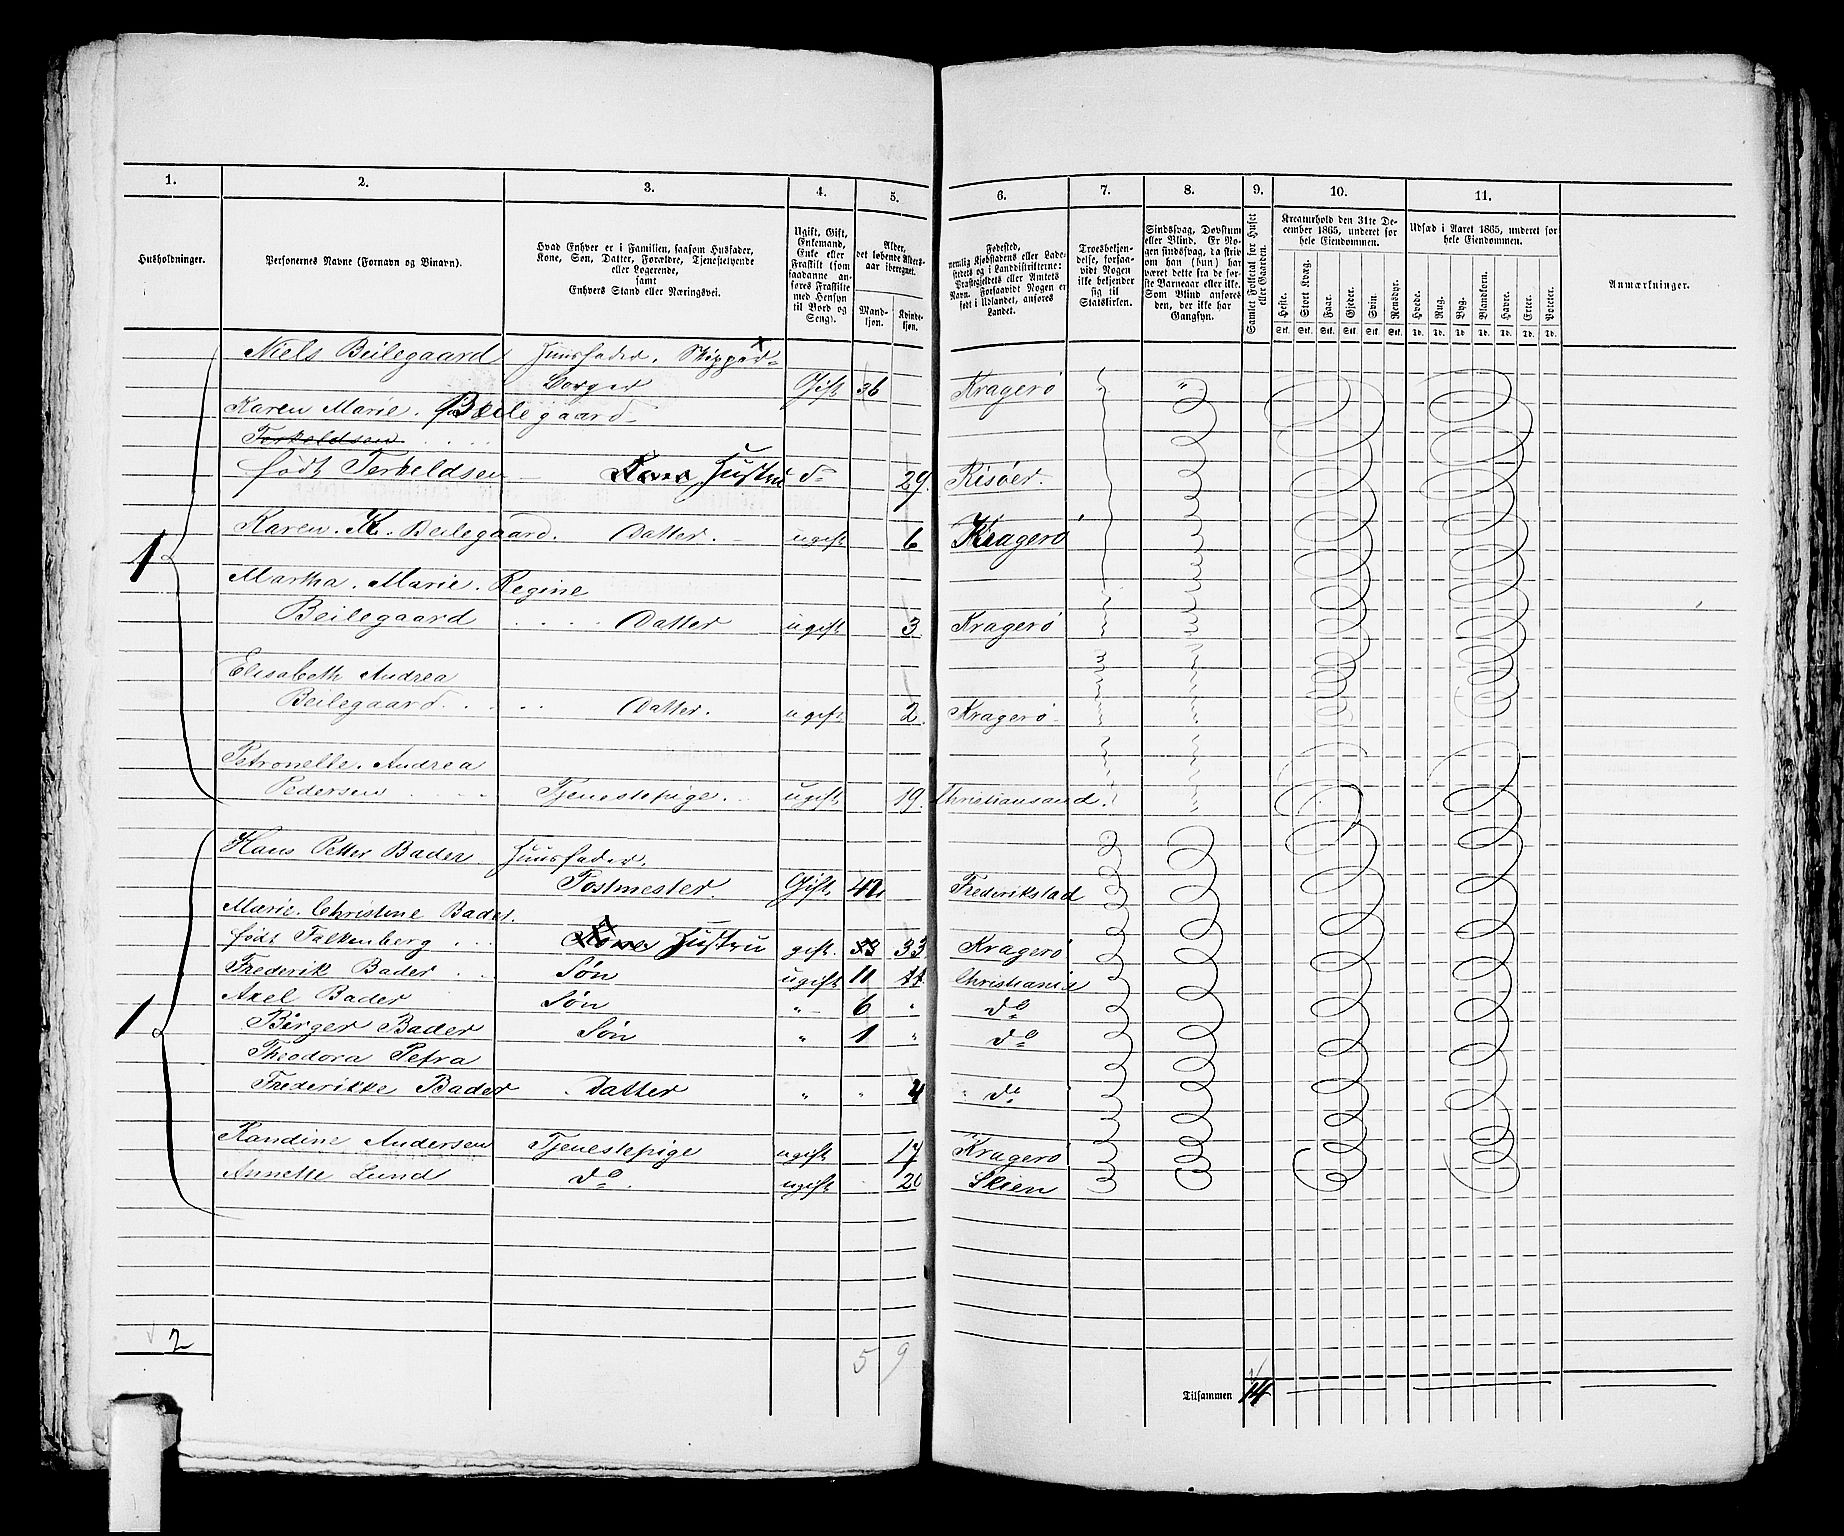 1. 2. 3. 4. 5. 6. 7. 8. 9. 10. 11.
Husholdninger.
Personernes Navne (Fornavn og Binavn).
Hvad Enhver er i Familien, saasom Husfader,
Kone, Søn, Datter, Forældre, Tjenestetyende
eller Logerende,
samt
Enhvers Stand eller Næringsvei.
Ugift, Gift,
Enkemand,
Enke eller
Fraskilt (som
saadanne an-
føres Fraskilte
med Hensyn
til Bord og
Seng).
Alder,
det løbende Alders-
aar iberegnet.
Mand-
kjøn.
Kvinde-
kjøn.
Fødested,
nemlig Kjøbstadens eller Lade-
stedets og i Landdistrikterne:
Præstegjeldets eller Amtets
Navn. Forsaavidt Nogen er
født i Udlandet, anføres
Landet.
Troesbekjen-
delse, forsaa-
vidt Nogen
ikke bekjender
sig til
Statskirken.
Sindssvag, Døvstum
eller Blind. Er No-
gen sindssvag, da skriv
om han (hun) har
været dette fra de før-
ste Barneaar eller ikke.
Som Blind anføres
den, der ikke har
Gangsyn.
Samlet Folketal for Huset
eller Gaarden.
Kreaturhold den 31te De-
cember 1865, underet for
hele Eiendommen.
Heste. Stort Kvæg. Faar. Gjeder. Svin. Rensdyr.
Stk. Stk. Stk. Stk. Stk. Stk.
Udsæd i Aaret 1865, underet for
hele Eiendommen.
Hvede. Rug. Byg. Blandkorn. Havre. Erter. Poteter.
Td. Td. Td. Td. Td. Td. Td.
Anmærkninger.
Niels Beilegaard Huusfader. Skipper-
Borger Gift 36 Kragerø "
Karen Marie. Beilegaard
Terkeldsen
født Terkeldsen Kone Hustru do 29. Risøer.
1 Karen. K. Beilegaard. Datter. ugift 6 Kragerø
Martha. Marie. Regine
Beilegaard Datter ugift 3 Kragerø
Elisabeth Andrea
Beilegaard Datter. ugift 2. Kragerø
Petronelle. Andrea
Pedersen Tjenestepige ugift 19. Christiansand.
Hans Petter Bader Huusfader.
Postmester. Gift. 42 Frederikstad
Marie. Christine Bader.
født Falkenberg Kone Hustru gift. 33 33 Kragerø
Frederik Bader Søn ugift 11 11 Christiania
1 Axel Bader Søn " 6 " do
Birger Bader Søn " 1 " do
Theodora Petra
Frederikke Bader Datter " " 4 " do
Randine Andersen Tjenestepige ugift 17 Kragerø
Annette Lund do ugift 20 Skien
2 5 9
Tilsammen 14